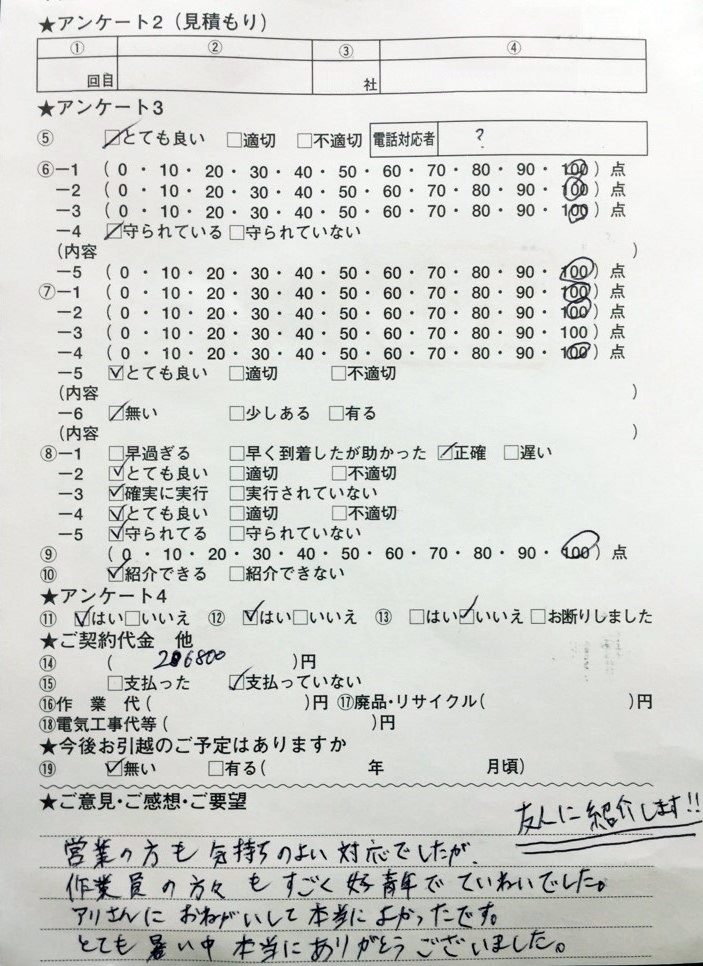 ★アンケート2（見積もり）
① ② ③ ④
回目 社
★アンケート3
⑤ ☑とても良い □適切 □不適切 電話対応者 ?
⑥－1 ( 0 ・ 10 ・ 20 ・ 30 ・ 40 ・ 50 ・ 60 ・ 70 ・ 80 ・ 90 ・ 100 ) 点
－2 ( 0 ・ 10 ・ 20 ・ 30 ・ 40 ・ 50 ・ 60 ・ 70 ・ 80 ・ 90 ・ 100 ) 点
－3 ( 0 ・ 10 ・ 20 ・ 30 ・ 40 ・ 50 ・ 60 ・ 70 ・ 80 ・ 90 ・ 100 ) 点
－4 ☑守られている □守られていない
(内容 )
－5 ( 0 ・ 10 ・ 20 ・ 30 ・ 40 ・ 50 ・ 60 ・ 70 ・ 80 ・ 90 ・ 100 ) 点
⑦－1 ( 0 ・ 10 ・ 20 ・ 30 ・ 40 ・ 50 ・ 60 ・ 70 ・ 80 ・ 90 ・ 100 ) 点
－2 ( 0 ・ 10 ・ 20 ・ 30 ・ 40 ・ 50 ・ 60 ・ 70 ・ 80 ・ 90 ・ 100 ) 点
－3 ( 0 ・ 10 ・ 20 ・ 30 ・ 40 ・ 50 ・ 60 ・ 70 ・ 80 ・ 90 ・ 100 ) 点
－4 ( 0 ・ 10 ・ 20 ・ 30 ・ 40 ・ 50 ・ 60 ・ 70 ・ 80 ・ 90 ・ 100 ) 点
－5 ☑とても良い □適切 □不適切
(内容 )
－6 ☑無い □少しある □有る
(内容 )
⑧－1 □早過ぎる □早く到着したが助かった ☑正確 □遅い
－2 ☑とても良い □適切 □不適切
－3 ☑確実に実行 □実行されていない
－4 ☑とても良い □適切 □不適切
－5 ☑守られてる □守られていない
⑨ ( 0 ・ 10 ・ 20 ・ 30 ・ 40 ・ 50 ・ 60 ・ 70 ・ 80 ・ 90 ・ 100 ) 点
⑩ ☑紹介できる □紹介できない
★アンケート4
⑪ ☑はい□いいえ ⑫ ☑はい□いいえ ⑬ □はい☑いいえ □お断りしました
★ご契約代金 他
⑭ ( )円
⑮ □支払った ☑支払っていない
⑯作 業 代( )円 ⑰廃品・リサイクル( )円
⑱電気工事代等( )円
★今後お引越のご予定はありますか
⑲ ☑無い □有る( 年 月頃)
★ご意見・ご感想・ご要望
友人に紹介します!!
営業の方も気持ちのよい対応でしたが、
作業員の方々もすごく好青年でていねいでした。
アリさんにおねがいして本当によかったです。
とても暑い中本当にありがとうございました。